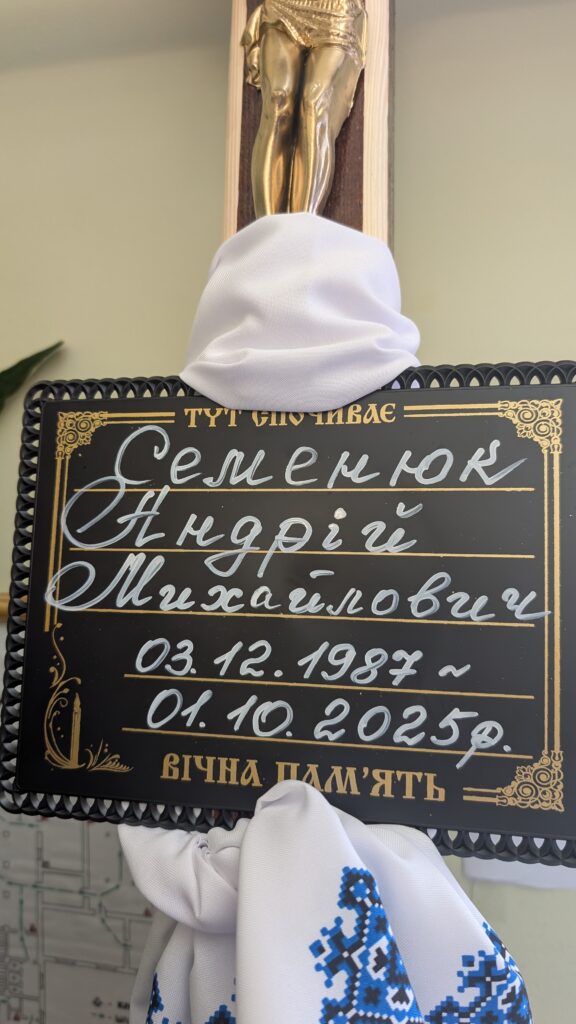 ТУТ СПОЧИВАЄ
Семенюк
Андрій
Михайлович
03.12.1987 ~
01.10.2025р.
ВІЧНА ПАМ'ЯТЬ